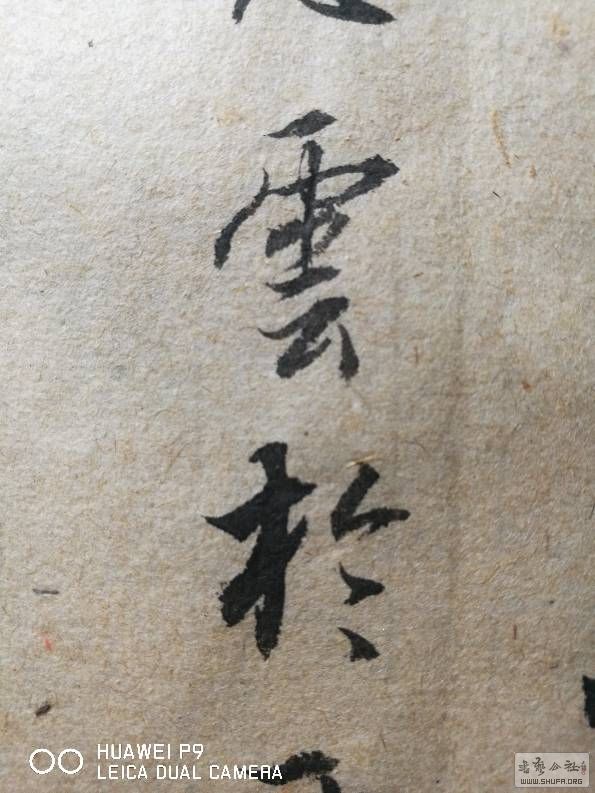 雲於
HUAWEI P9
LEICA DUAL CAMERA
書法公社
WWW.SHUFA.ORG